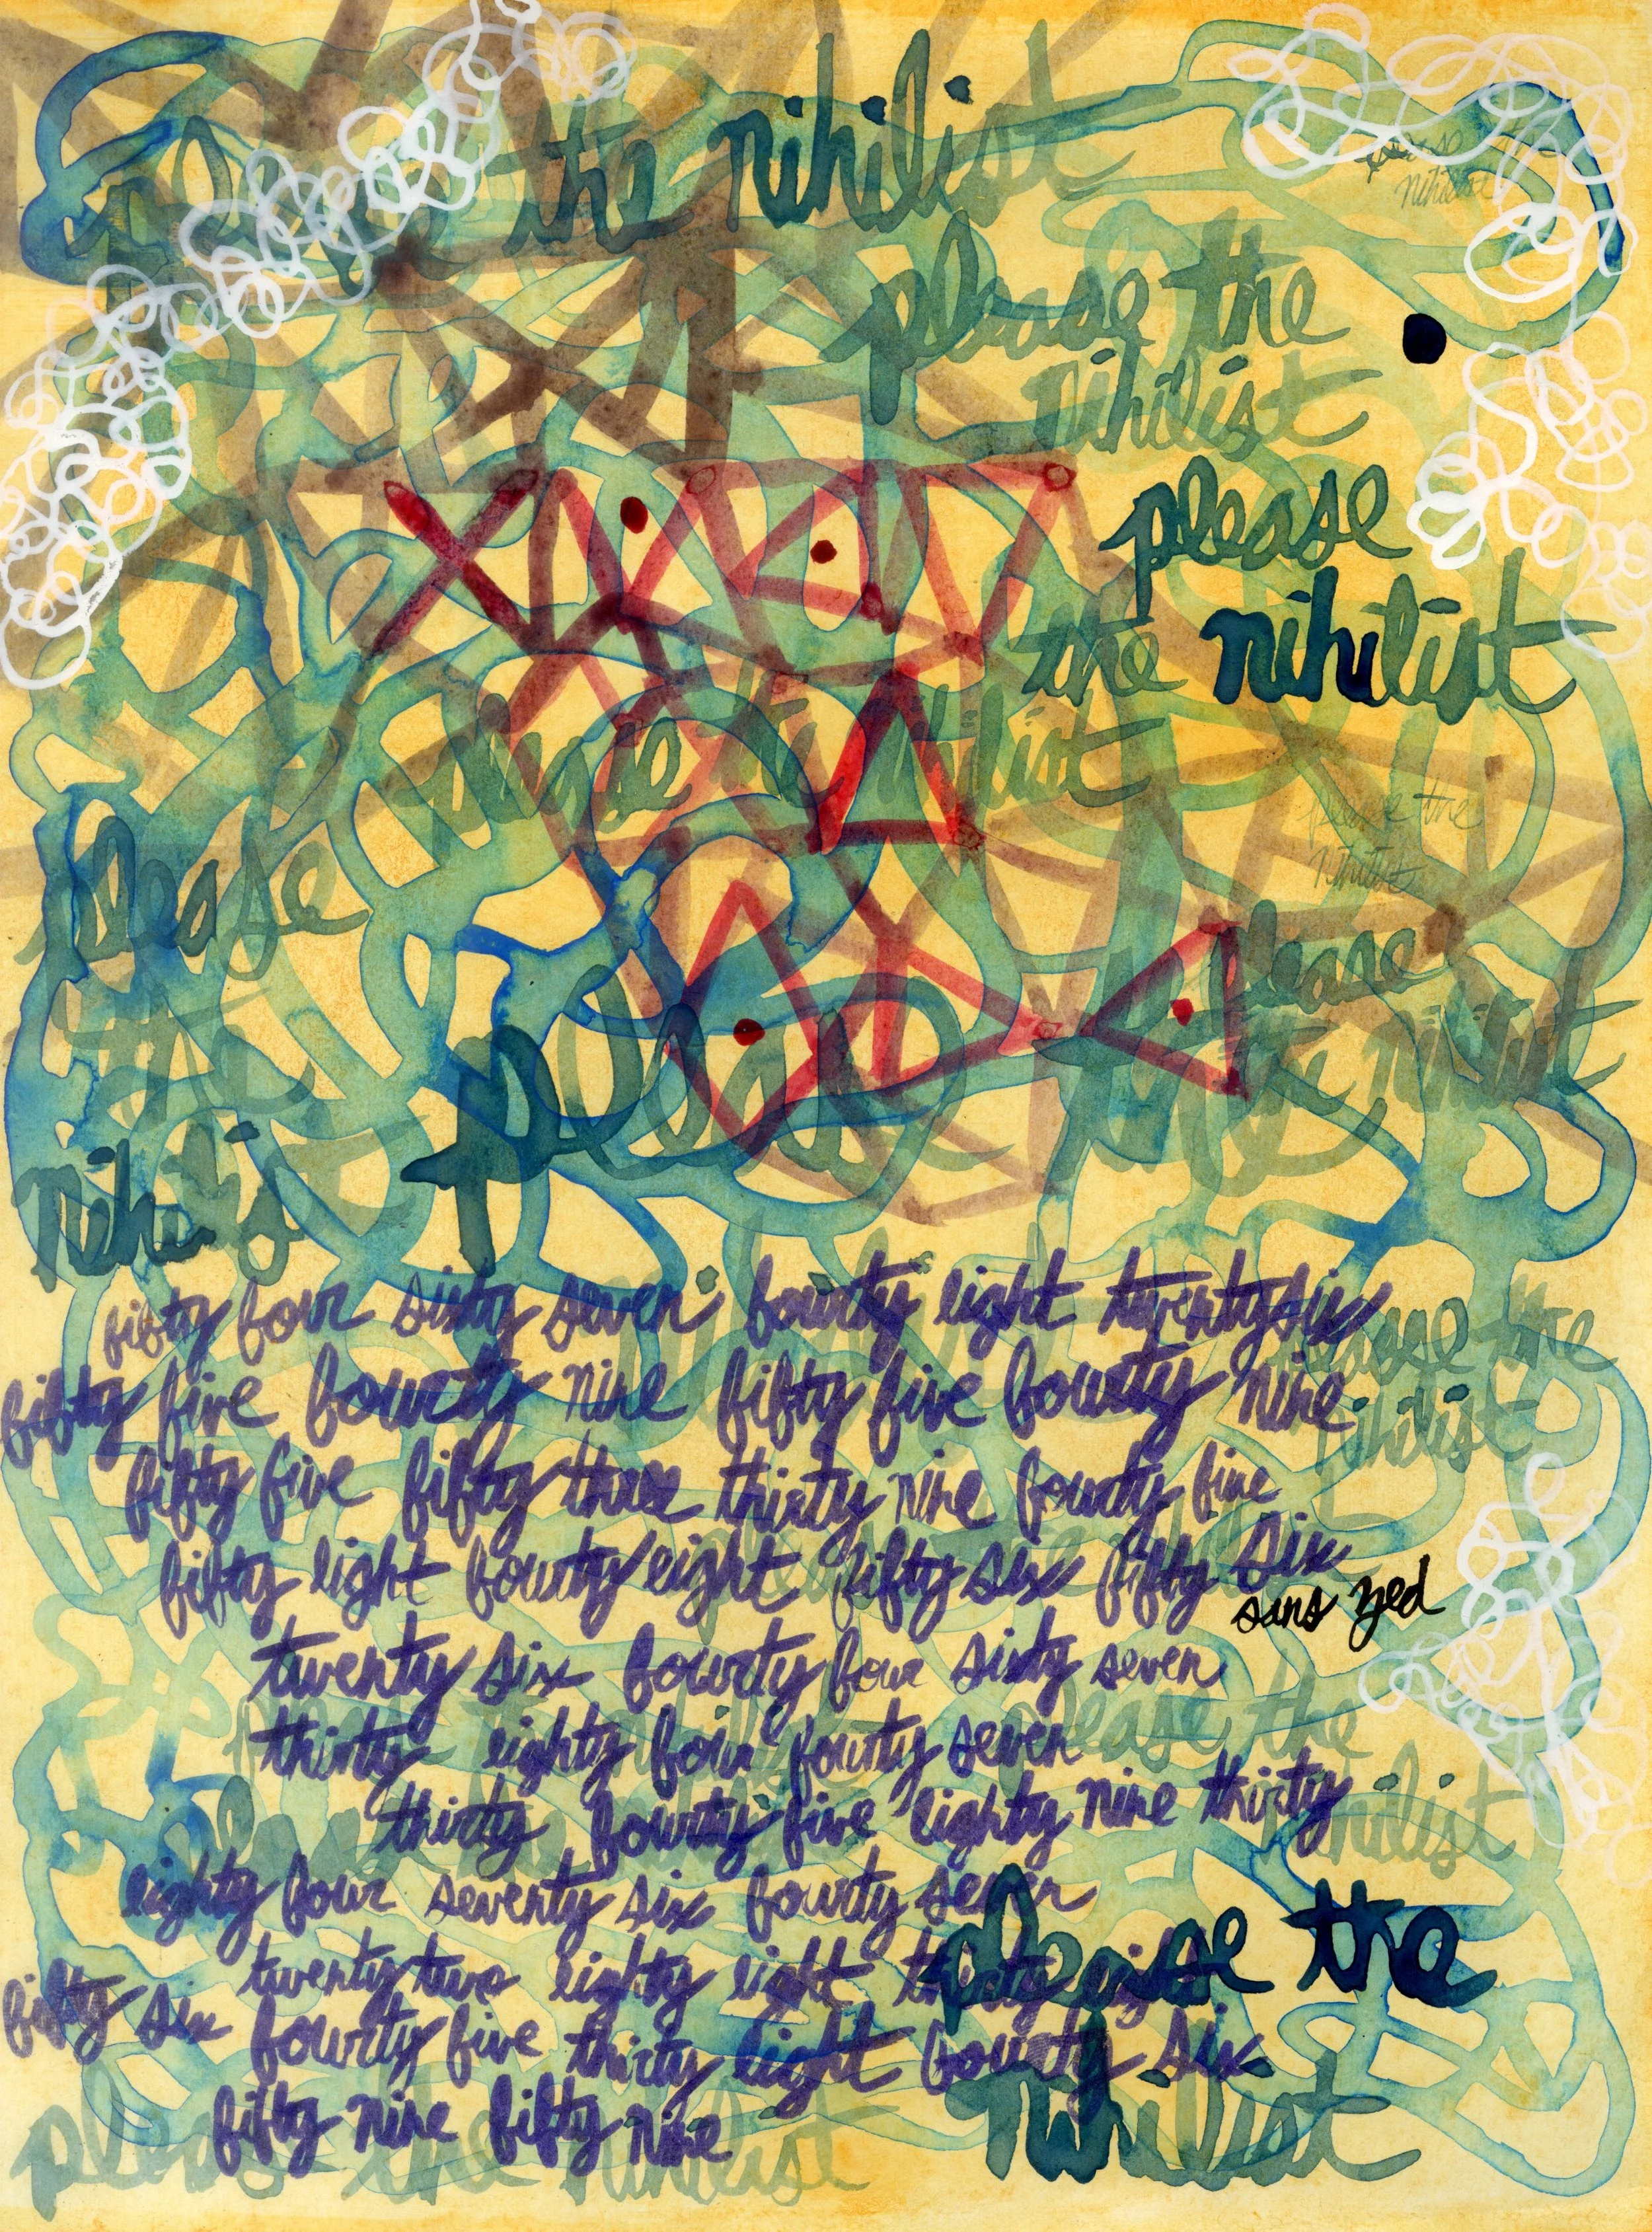 please the nihilist
please the nihilist
please the
nihilist
please
the nihilist
please the nihilist
please the
nihilist
please
the
nihilis
please
the nihilist
please
please the
nihilist
fifty four sixty seven fourty eight twenty six
fifty five fourty nine fifty five fourty nine
fifty five fifty three thirty nine fourty five
fifty eight fourty eight fifty six fifty six
sans zed
twenty six fourty four sixty seven
thirty eighty four fourty seven
please the
nihilist
thirty fourty five eighty nine thirty
eighty four seventy six fourty seven
twenty two eighty eight thirty eight
fifty six fourty five thirty eight fourty six
fifty nine fifty nine
please the
nihilist
please the nihilist